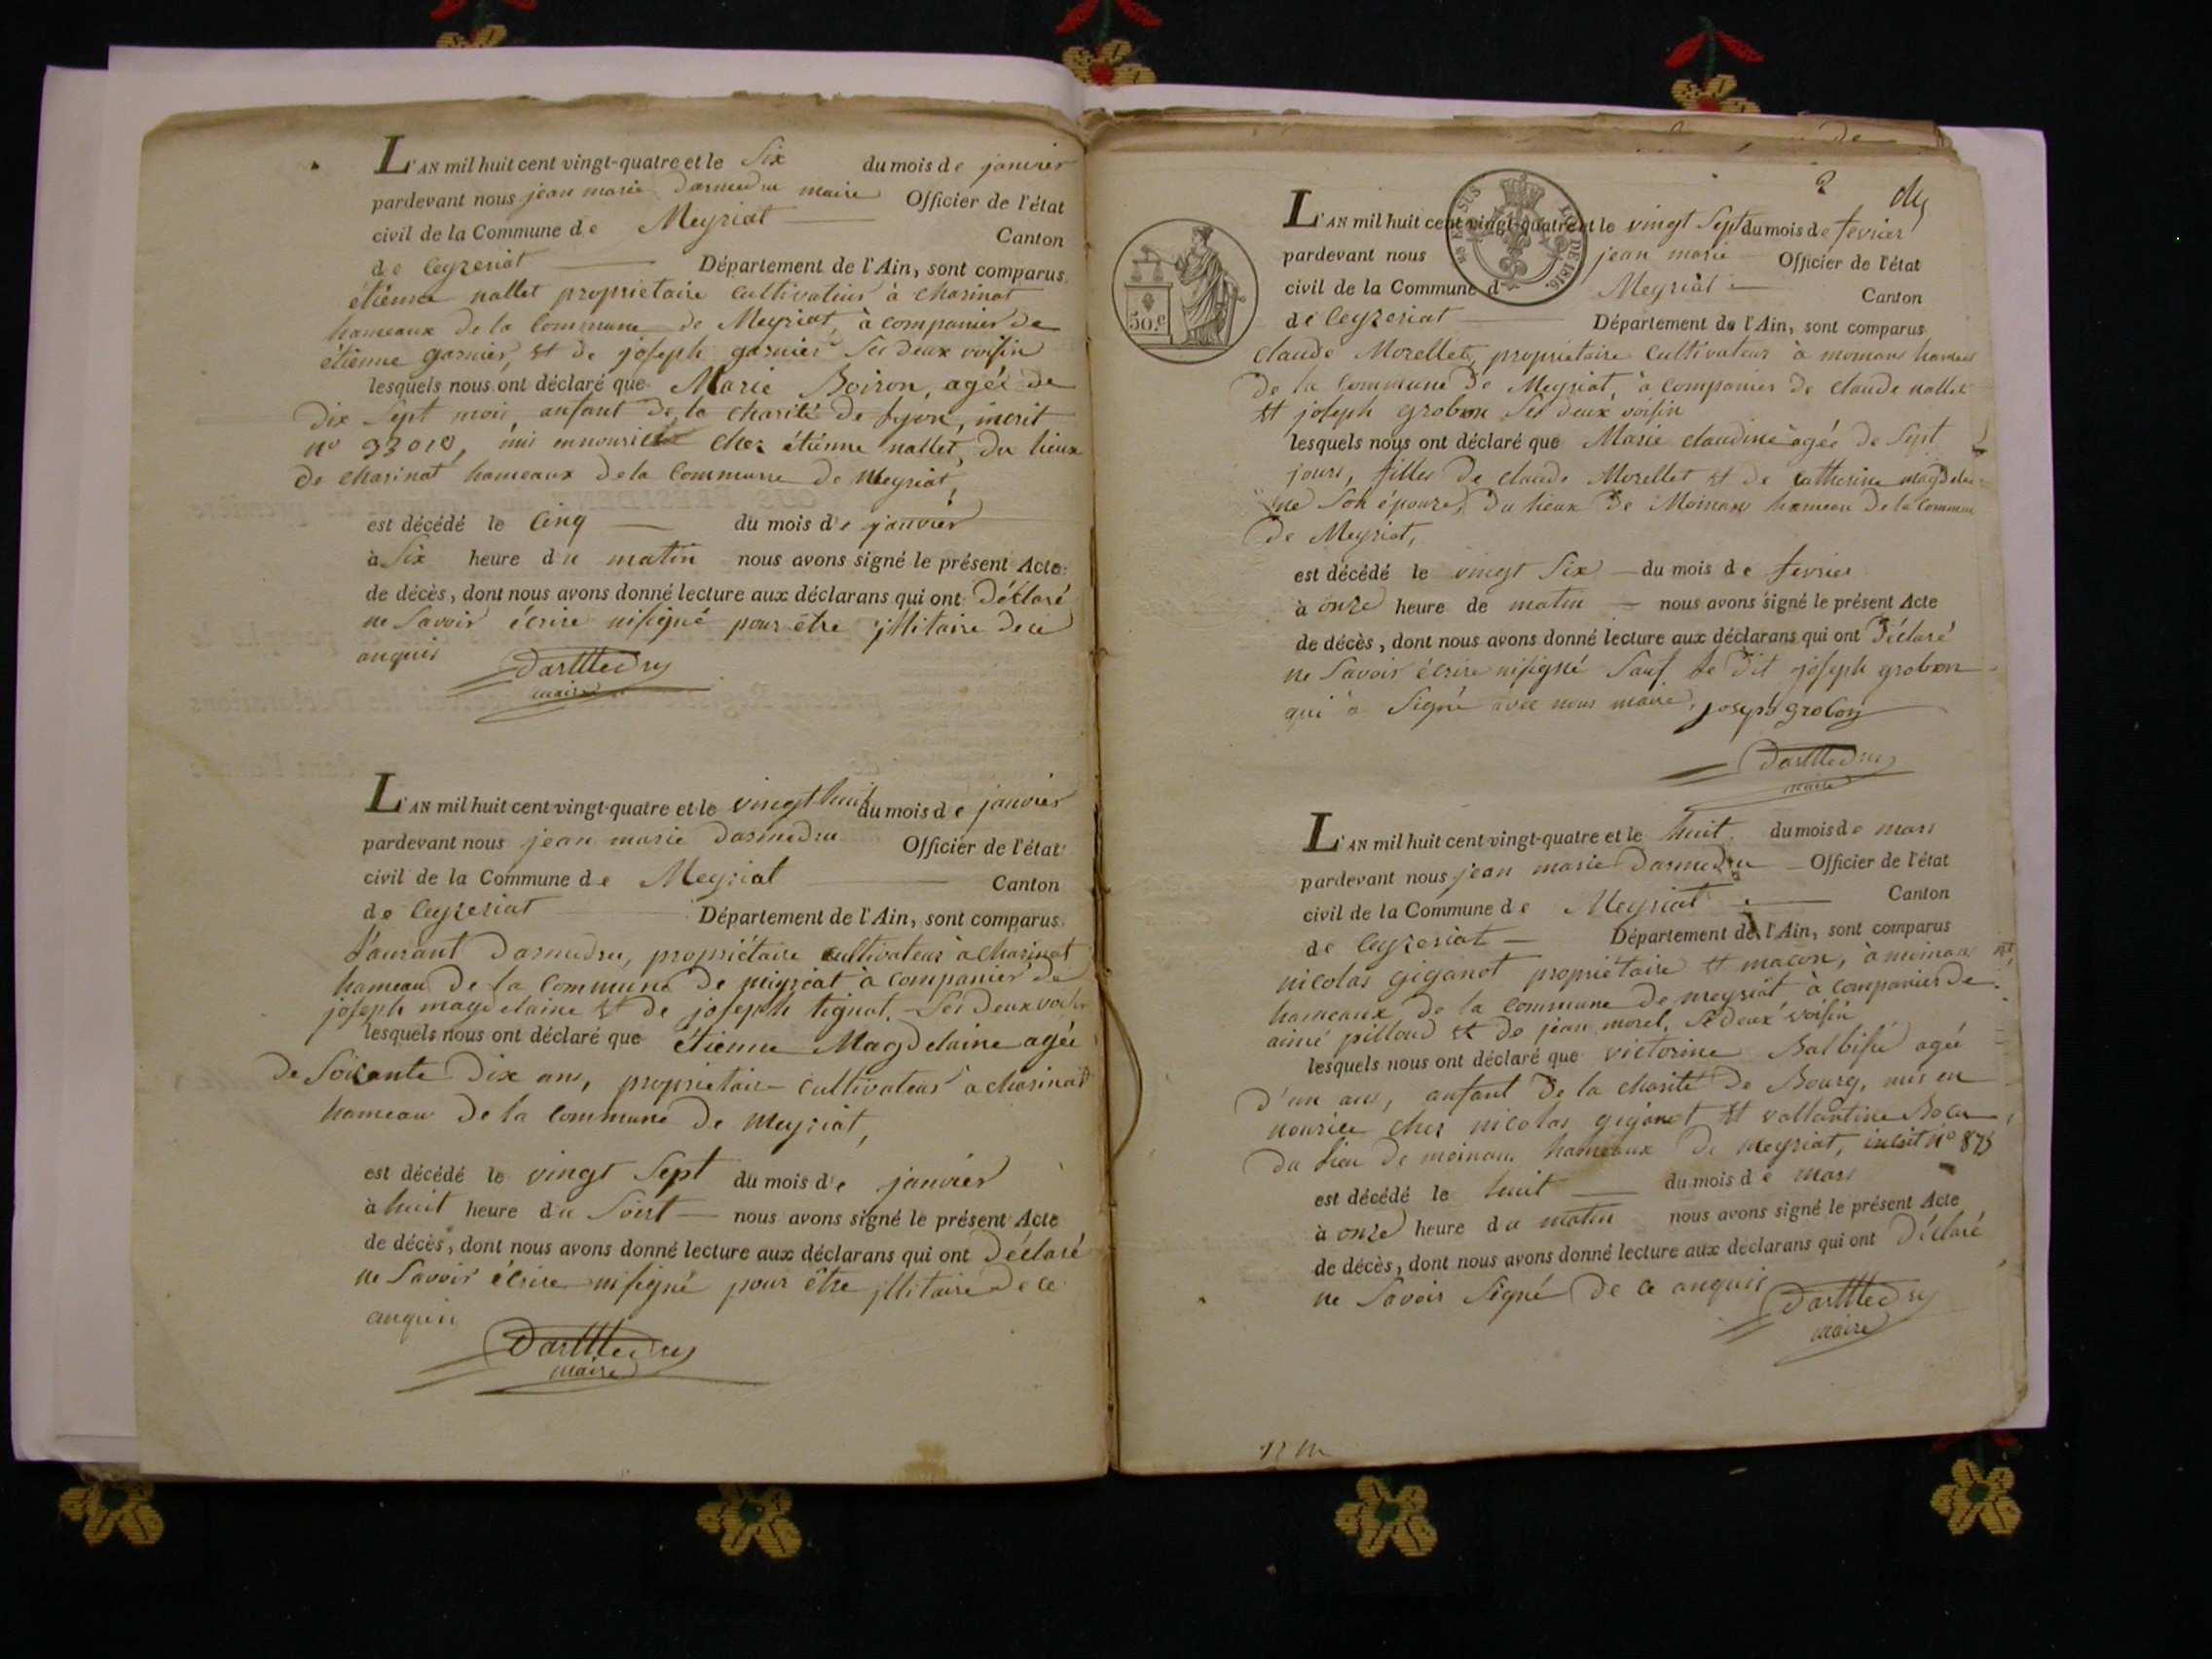 L'AN mil huit cent vingt-quatre et le Six du mois de janvier
pardevant nous jean marie darmedru maire Officier de l'état
civil de la Commune de Meyriat Canton
de Ceyzeriat Département de l'Ain, sont comparus
étienne nallet proprietaire cultivateur à charinat
hameaux de la Commune de Meyriat, à companier de
étienne garnier, et de joseph garnier Ses deux voisin
lesquels nous ont déclaré que Marie Boiron, agée de
dix Sept mois anfant de la charité de Lyon, incrit
no 33010, mis en nourice chez étienne nallet, du lieux
de charinat hameaux de la Commune de Meyriat,
est décédé le Cinq du mois de janvier
à Six heure du matin nous avons signé le présent Acte
de décès, dont nous avons donné lecture aux déclarans qui ont déclaré
ne Savoir écrire nisigné pour être jllitaire de ce
anquis
Darmedru
maire
L'AN mil huit cent vingt-quatre et le vingt huit du mois de janvier
pardevant nous jean marie darmedru Officier de l'état
civil de la Commune de Meyriat Canton
de Ceyzeriat Département de l'Ain, sont comparus
Laurant darmedru, propriétaire cultivateur à charinat
hameau de la Commune de meyriat à companier de
joseph magdelaine et de joseph tignat. Ses deux voisin
lesquels nous ont déclaré que étienne Magdelaine agée
de Soixante dix ans, proprietaire cultivateur à charinat
hameau de la Commune de Meyriat,
est décédé le vingt Sept du mois de janvier
à huit heure du Soirt nous avons signé le présent Acte
de décès, dont nous avons donné lecture aux déclarans qui ont déclaré
ne Savoir écrire nisigné pour être jllitaire de ce
anquis
Darmedru
maire
2
L'AN mil huit cent vingt-quatre et le vingt Sept du mois de fevrier
pardevant nous jean marie Officier de l'état
civil de la Commune d Meyriat Canton
de Ceyzeriat Département de l'Ain, sont comparus
EN SUS
LOI DE 1816.
50.c
claude Morellet, proprietaire Cultivateur à momans hameau
de la Commune de Meyriat, à companier de claude nallet
et joseph grobon Ses deux voisin
lesquels nous ont déclaré que Marie claudine agée de Sept
jours, filles de claude Morellet et de catherine magdelai
ne Son épouze, du lieux de Moinans hameau de la Commune
de Meyriat,
est décédé le vingt Six du mois de fevrier
à onze heure de matin nous avons signé le présent Acte
de décès, dont nous avons donné lecture aux déclarans qui ont déclaré
ne Savoir écrire nisigné Sauf le dit joseph grobon
qui à Signé avec nous maire, joseph grobon
Darmedru
maire
L'AN mil huit cent vingt-quatre et le huit du mois de mars
pardevant nous jean marie darmedru Officier de l'état
civil de la Commune de Meyriat Canton
de Ceyzeriat Département de l'Ain, sont comparus
nicolas giganot propriétaire et macon, à moinans
hameaux de la commune de meyriat à companier de
aimé pilloud et de jean morel, Se deux voisin
lesquels nous ont déclaré que victorine Balbisié agée
d'un ans, anfant de la charité de Bourg, mis en
nourice chez nicolas giganot et vallantine
du lieu de moinans hameaux de meyriat, incrit no 875
est décédé le huit du mois de mars
à onze heure du matin nous avons signé le présent Acte
de décès, dont nous avons donné lecture aux déclarans qui ont déclaré
ne Savoir Signé de ce anquis
Darmedru
maire